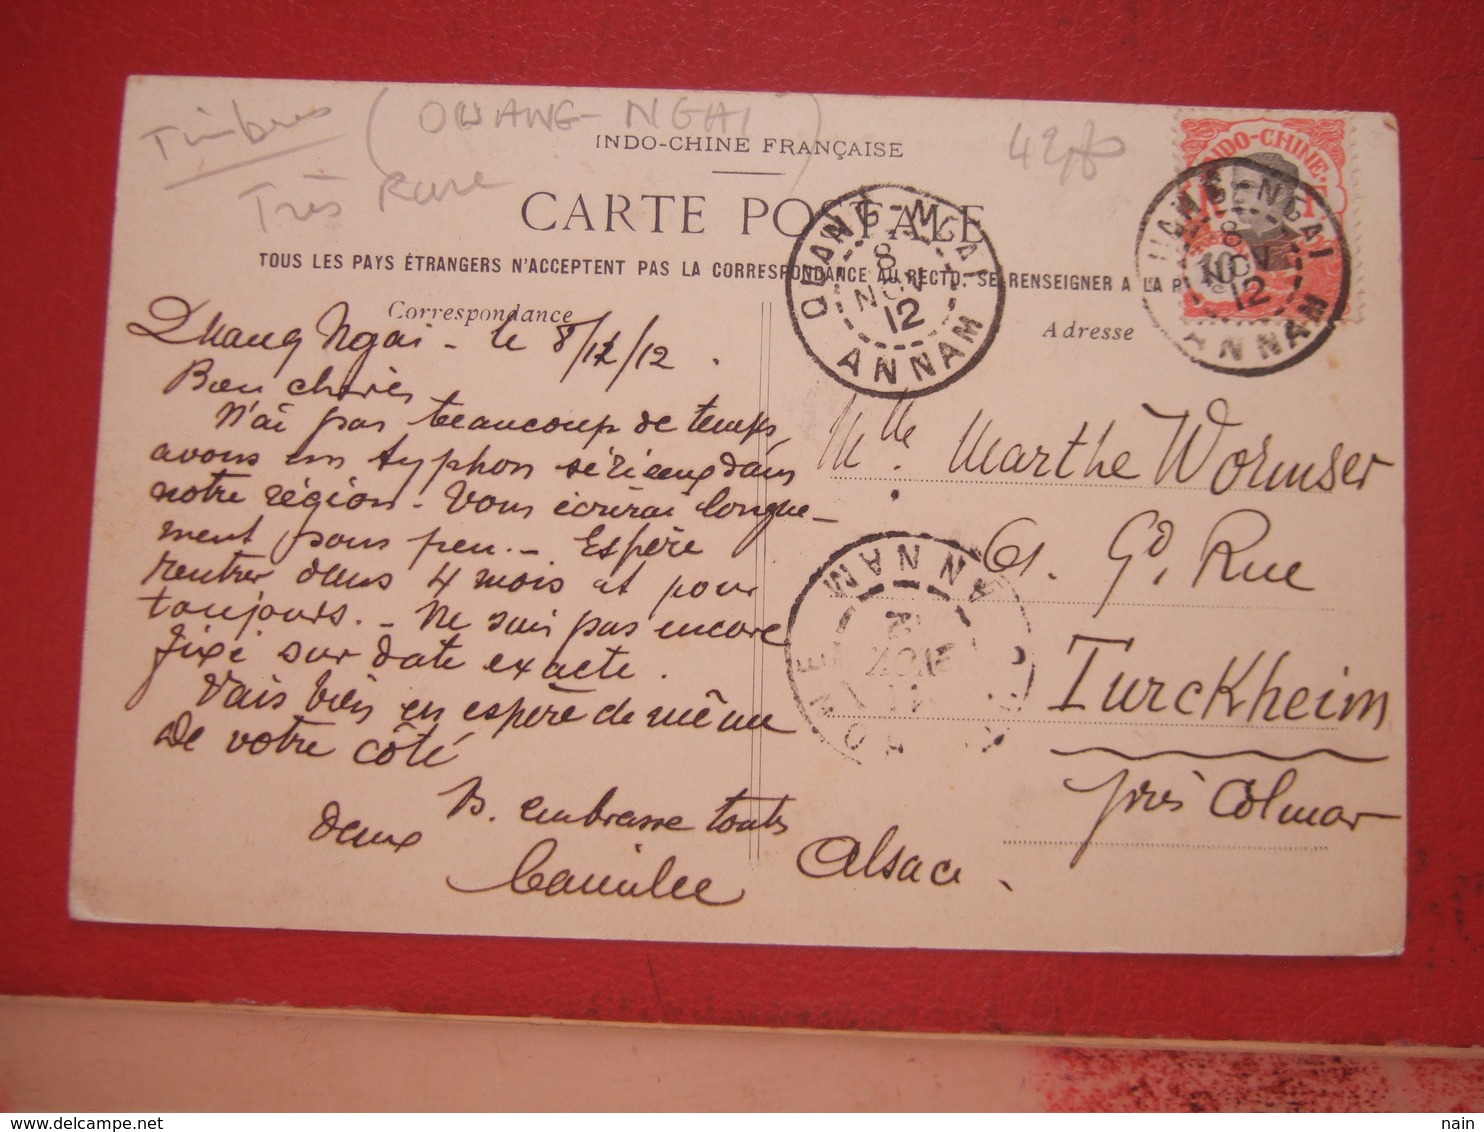 Timbres (QUANG-NGAI)
Très Rare
42
INDO-CHINE FRANÇAISE
CARTE POSTALE
TOUS LES PAYS ÉTRANGERS N'ACCEPTENT PAS LA CORRESPONDANCE AU RECTO. SE RENSEIGNER A LA P
Correspondance
Adresse
INDO-CHINE
10
QUANG-NGAI
8
NOV
12
ANNAM
QUANG-NGAI
8
NOV
12
ANNAM
Quang Ngai - le 8/11/12.
Bien chères
N'ai pas beaucoup de temps,
avons un typhon sérieux dans
notre région. - Vous écrirai longue-
ment sous peu. - Espère
rentrer dans 4 mois et pour
toujours. - Ne suis pas encore
fixé sur date exacte.
Vais bien en espère de même
de votre côté
B. embrasse toutes
deux
Camille
Mlle. Marthe Wormser
61. Gd. Rue
Turckheim
près Colmar
Alsace.
ANNAM
NOV
nain